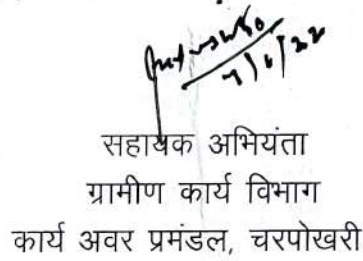 7/6/22
सहायक अभियंता
ग्रामीण कार्य विभाग
कार्य अवर प्रमंडल, चरपोखरी